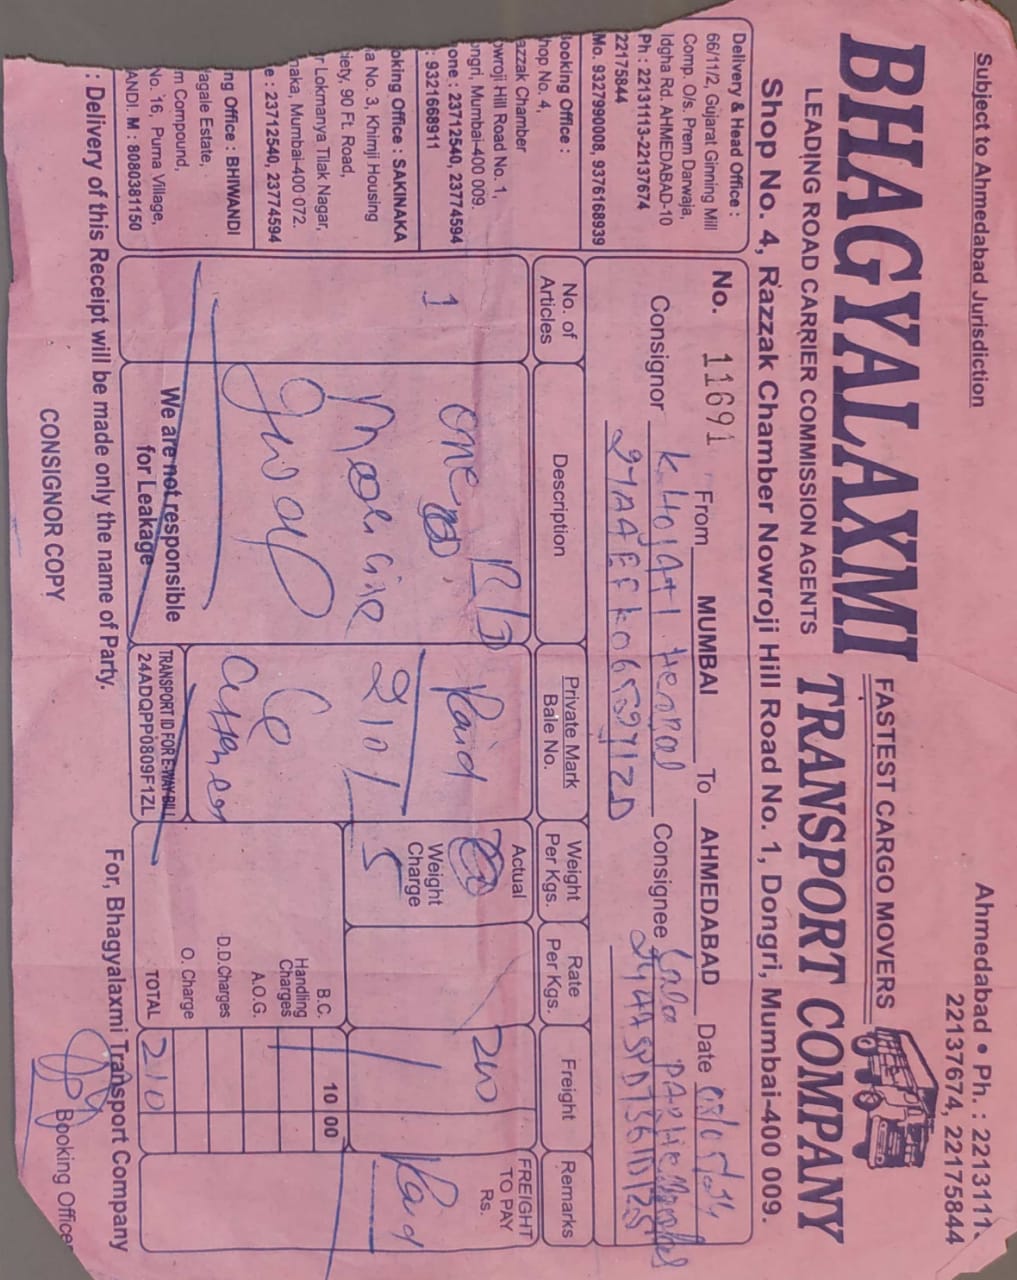 Subject to Ahmedabad Jurisdiction
Ahmedabad • Ph. : 2213111
22137674, 22175844
BHAGYALAXMI TRANSPORT COMPANY
FASTEST CARGO MOVERS
LEADING ROAD CARRIER COMMISSION AGENTS
Shop No. 4, Razzak Chamber Nowroji Hill Road No. 1, Dongri, Mumbai-400 009.
Delivery & Head Office :
66/11/2, Gujarat Ginning Mill
Comp. O/s. Prem Darwaja,
Idgha Rd. AHMEDABAD-10
Ph : 22131113-22137674
22175844
Mo. 9327990008, 9376168939
ooking Office :
hop No. 4,
azzak Chamber
owroji Hill Road No. 1,
ongri, Mumbai-400 009.
one : 23712540, 23774594
: 9321668911
oking Office : SAKINAKA
a No. 3, Khimji Housing
iety, 90 Ft. Road,
r Lokmanya Tilak Nagar,
naka, Mumbai-400 072.
e : 23712540, 23774594
ng Office : BHIWANDI
agale Estate,
m Compound,
No. 16, Purna Village,
ANDI. M : 8080381150
No. 11691 From MUMBAI To AHMEDABAD Date
Consignor Consignee
No. of Articles Description Private Mark Bale No. Weight Per Kgs. Rate Per Kgs. Freight Remarks
1 one Paid Actual 200 FREIGHT TO PAY Rs.
210/ Weight Charge 5 Paid
B.C. 10 00
Handling Charges
A.O.G.
D.D.Charges
O. Charge
TOTAL 210
We are not responsible
for Leakage
TRANSPORT ID FOR E-WAY BILL
24ADQPP0809F1ZL
: Delivery of this Receipt will be made only the name of Party.
For, Bhagyalaxmi Transport Company
CONSIGNOR COPY
Booking Officer